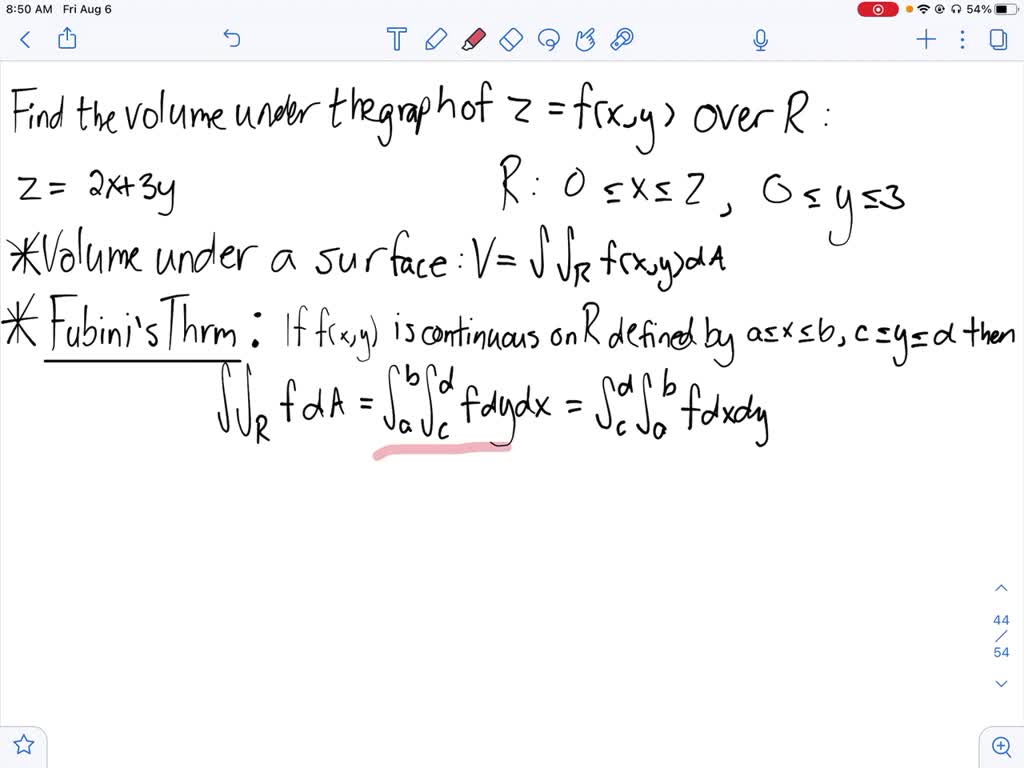 8:50 AM Fri Aug 6 54%
Find the volume under the graph of z = f(x,y) over R :
z = 2x+3y R : 0 ≤ x ≤ 2 , 0 ≤ y ≤ 3
*Volume under a surface : V = ∫∫_R f(x,y) dA
* Fubini's Thrm : If f(x,y) is continuous on R defined by a≤x≤b, c≤y≤d then
∫∫_R f dA = ∫_a^b ∫_c^d f dy dx = ∫_c^d ∫_a^b f dx dy
44
/
54